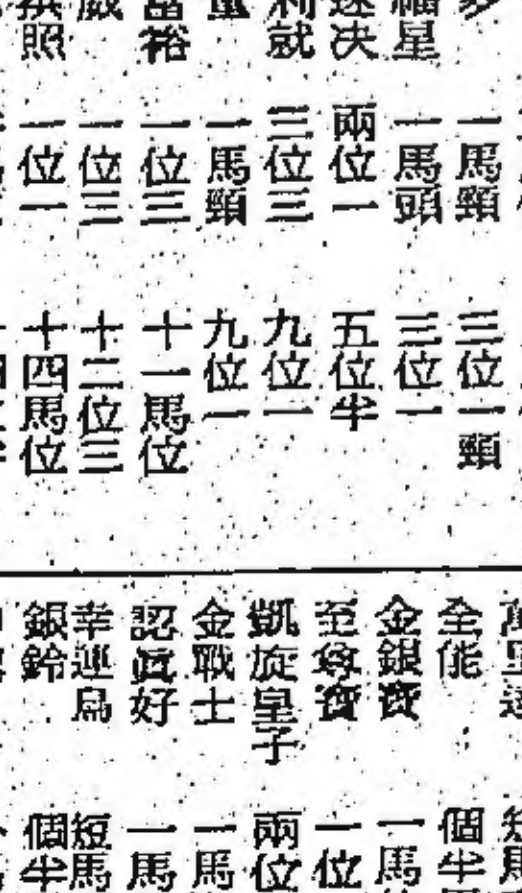 一馬頸 三位一頸
福星 一馬頭 三位一
速决 兩位一 五位半
利就 三位三 九位一
一馬頸 九位一
富裕 一位三 十一馬位
威 一位三 十二位三
照 一位一 十四馬位
短馬
全能 個半
金銀寶 一馬
至尊寶 一位
凱旋皇子 兩位
金戰士 一馬
認眞好 一馬
幸運鳥 短馬
銀鈴 個半